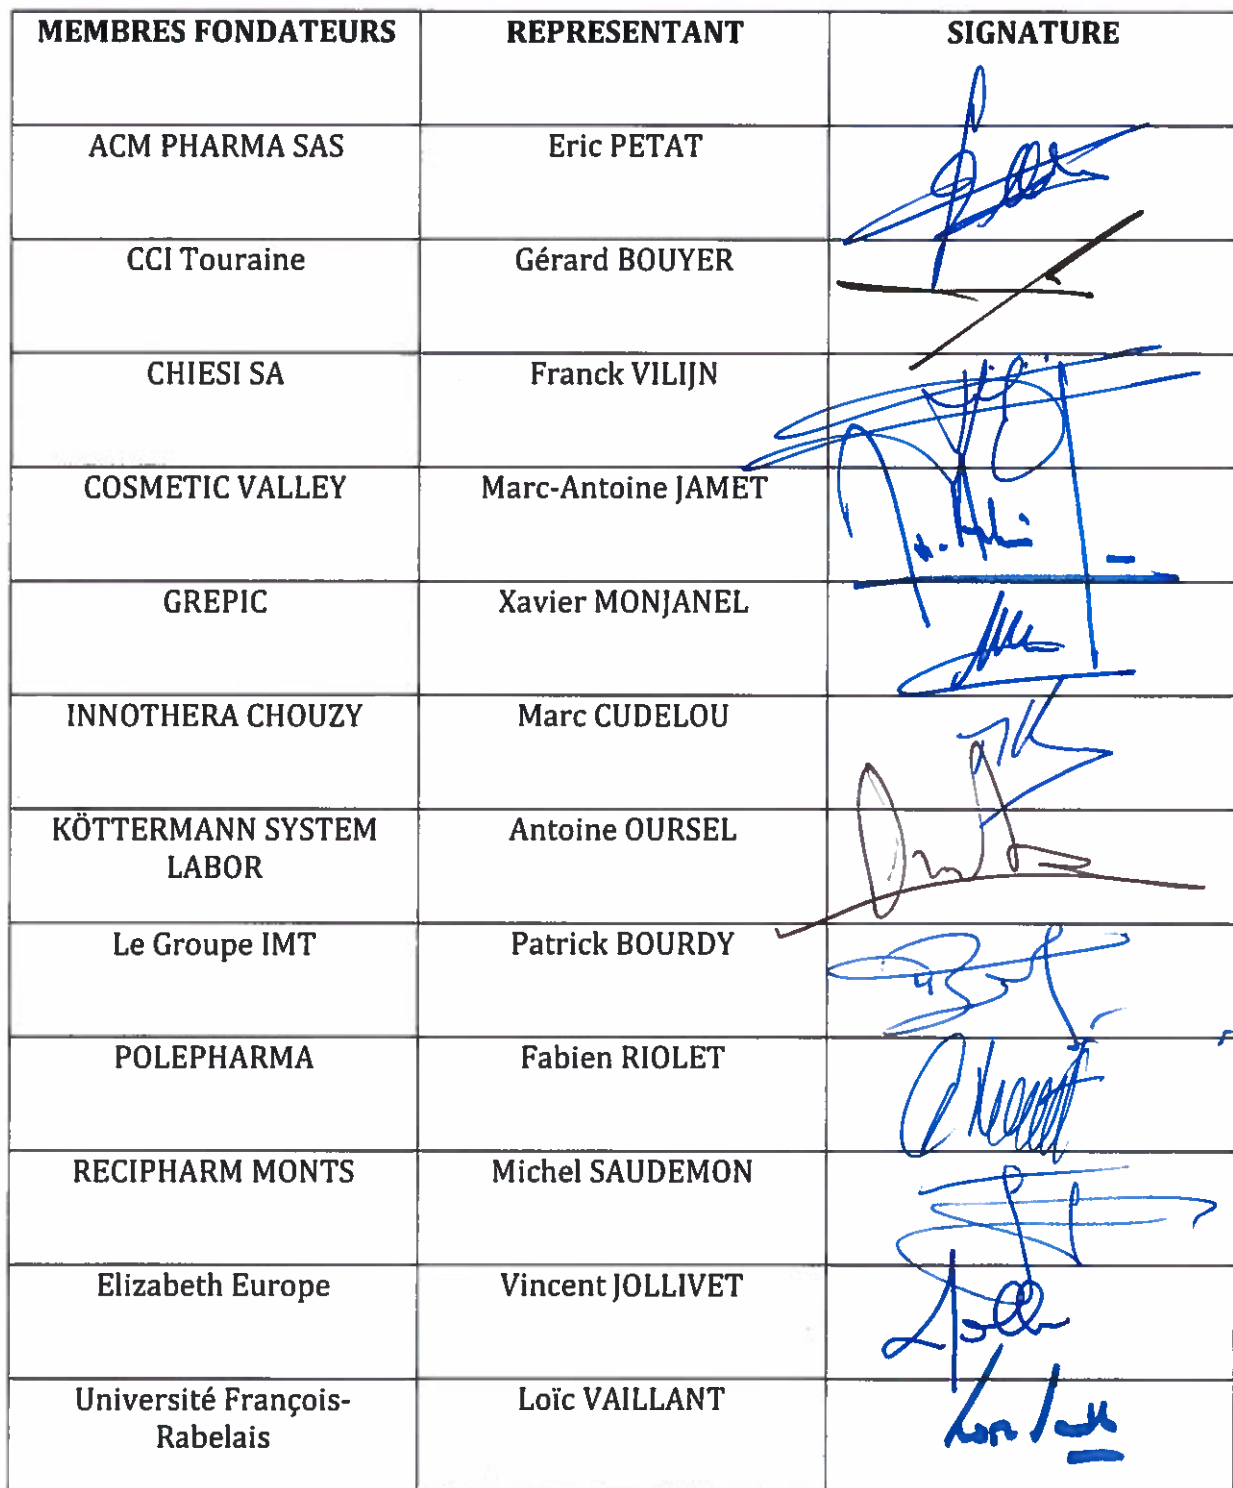 MEMBRES FONDATEURS REPRESENTANT SIGNATURE
ACM PHARMA SAS Eric PETAT
CCI Touraine Gérard BOUYER
CHIESI SA Franck VILIJN
COSMETIC VALLEY Marc-Antoine JAMET
GREPIC Xavier MONJANEL
INNOTHERA CHOUZY Marc CUDELOU
KÖTTERMANN SYSTEM Antoine OURSEL
LABOR
Le Groupe IMT Patrick BOURDY
POLEPHARMA Fabien RIOLET
RECIPHARM MONTS Michel SAUDEMON
Elizabeth Europe Vincent JOLLIVET
Université François- Loïc VAILLANT
Rabelais